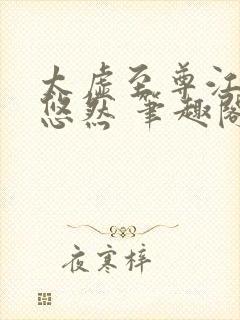 太虚至尊江
悠然 筆趣閣
夜寒梓